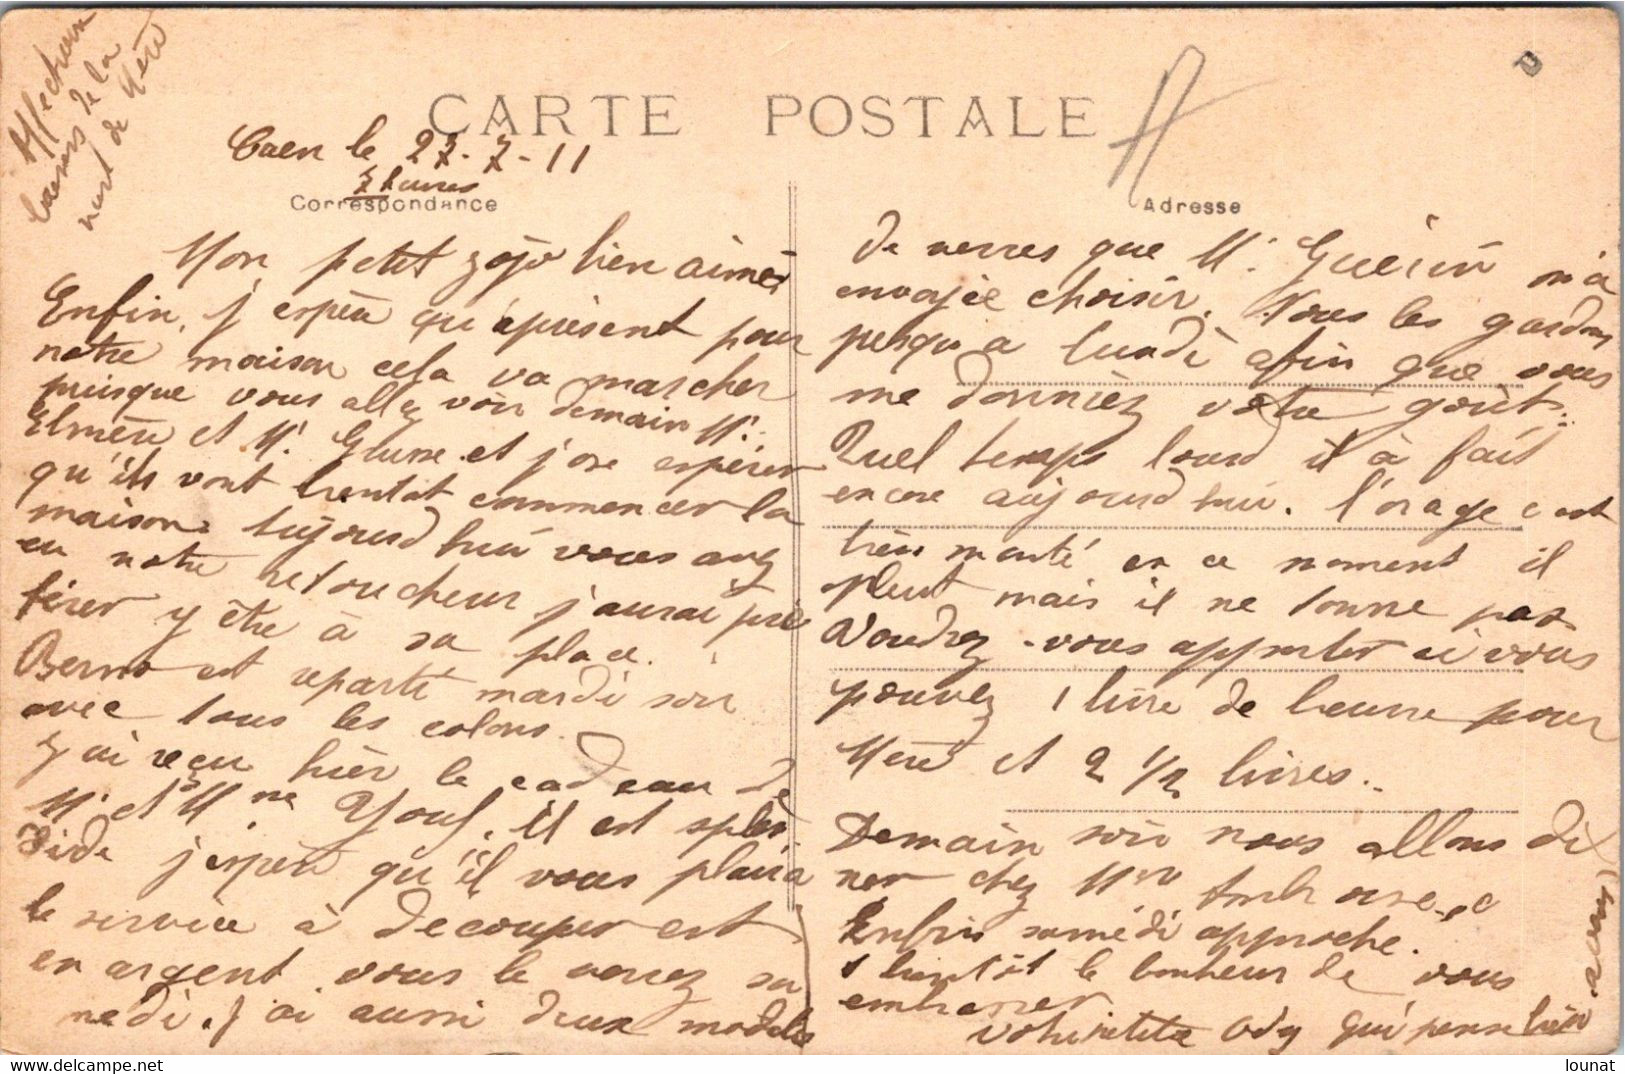 Affectueux
baisers de la
part de Mère
CARTE POSTALE
Caen le 27-7-11
7 heures
Correspondance
Adresse
Mon petit zojo bien aimé
Enfin, j'espère qu'àprésent pour
notre maison cela va marcher
puisque vous allez voir demain Mr.
et Mr. et j'ose espérer
qu'ils vont bientot commencer la
maison. Aujourd'hui vous avez
eu notre retoucheur j'aurai pré
férer y être à sa place.
est reparti mardi soir
avec tous les colons.
J'ai reçu hièr le cadeau de
Mr et Mme Youf. il est splen
dide j'espère qu'il vous plaira
le service à decouper est
en argent vous le verrez sa
medi. J'ai aussi deux modèles
de verres que Mr. Guérin m'a
envoyée choisir. Nous les gardons
jusqu'a lundi afin que vous
me donniez votre goût..
Quel temps lourd il à fait
encore aujourd'hui. l'orage est
très monté en ce moment il
pleut mais il ne tonne pas
Voudrez-vous apporter si vous
pouvez 1 livre de beurre pour
Mère et 2 1/2 livres..
Demain soir nous allons di
ner chez Mme Ambroise.
Enfin samedi approche.
A bientôt le bonheur de vous
embrasser
votre petite Ody qui pense bien
à vous.
lounat